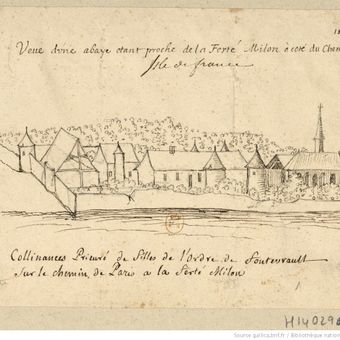 18
Veüe dune abaye etant proche de la Ferté Milon a coté du Chem
Isle de france
Collinances Prieuré de filles de l'Ordre de Fontevrault
Sur le chemin de Paris a la Ferté Milon
H140290
Source gallica.bnf.fr / Bibliothèque nation